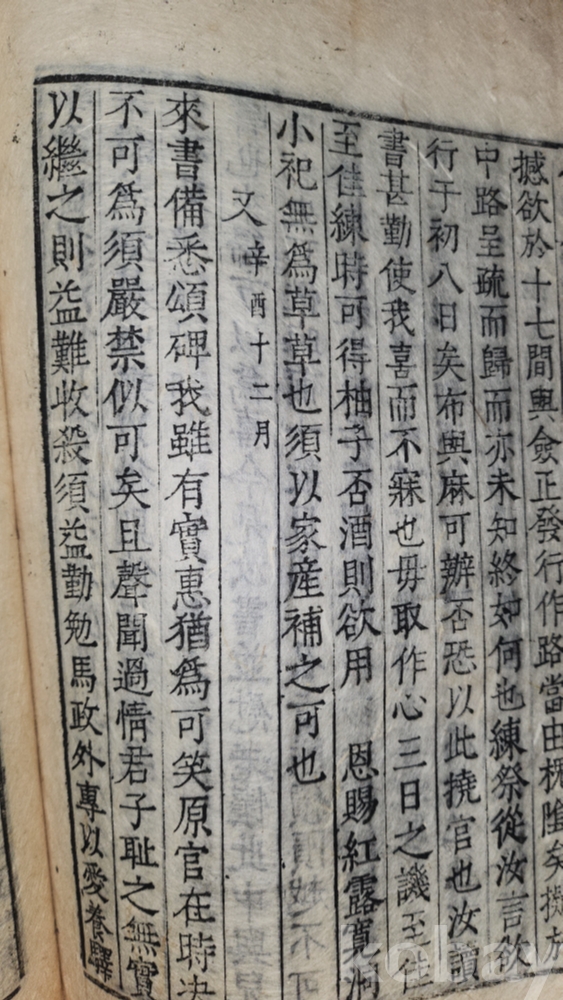 撼欲於十七間與僉正發行作路當由槐陰矣擬於
中路呈疏而歸而亦未知終如何也練祭從汝言欲
行于初八日矣布與麻可辦否恐以此撓官也汝讀
書甚勤使我喜而不寐也毋取作心三日之譏至佳
至佳練時可得柚子否酒則欲用 恩賜紅露寬洞
小祀無爲草草也須以家産補之可也
又 辛酉十二月
來書備悉頌碑我雖有實惠猶爲可笑原官在時决
不可爲須嚴禁似可矣且聲聞過情君子耻之無實
以繼之則益難收殺須益勤勉馬政外專以愛養驛